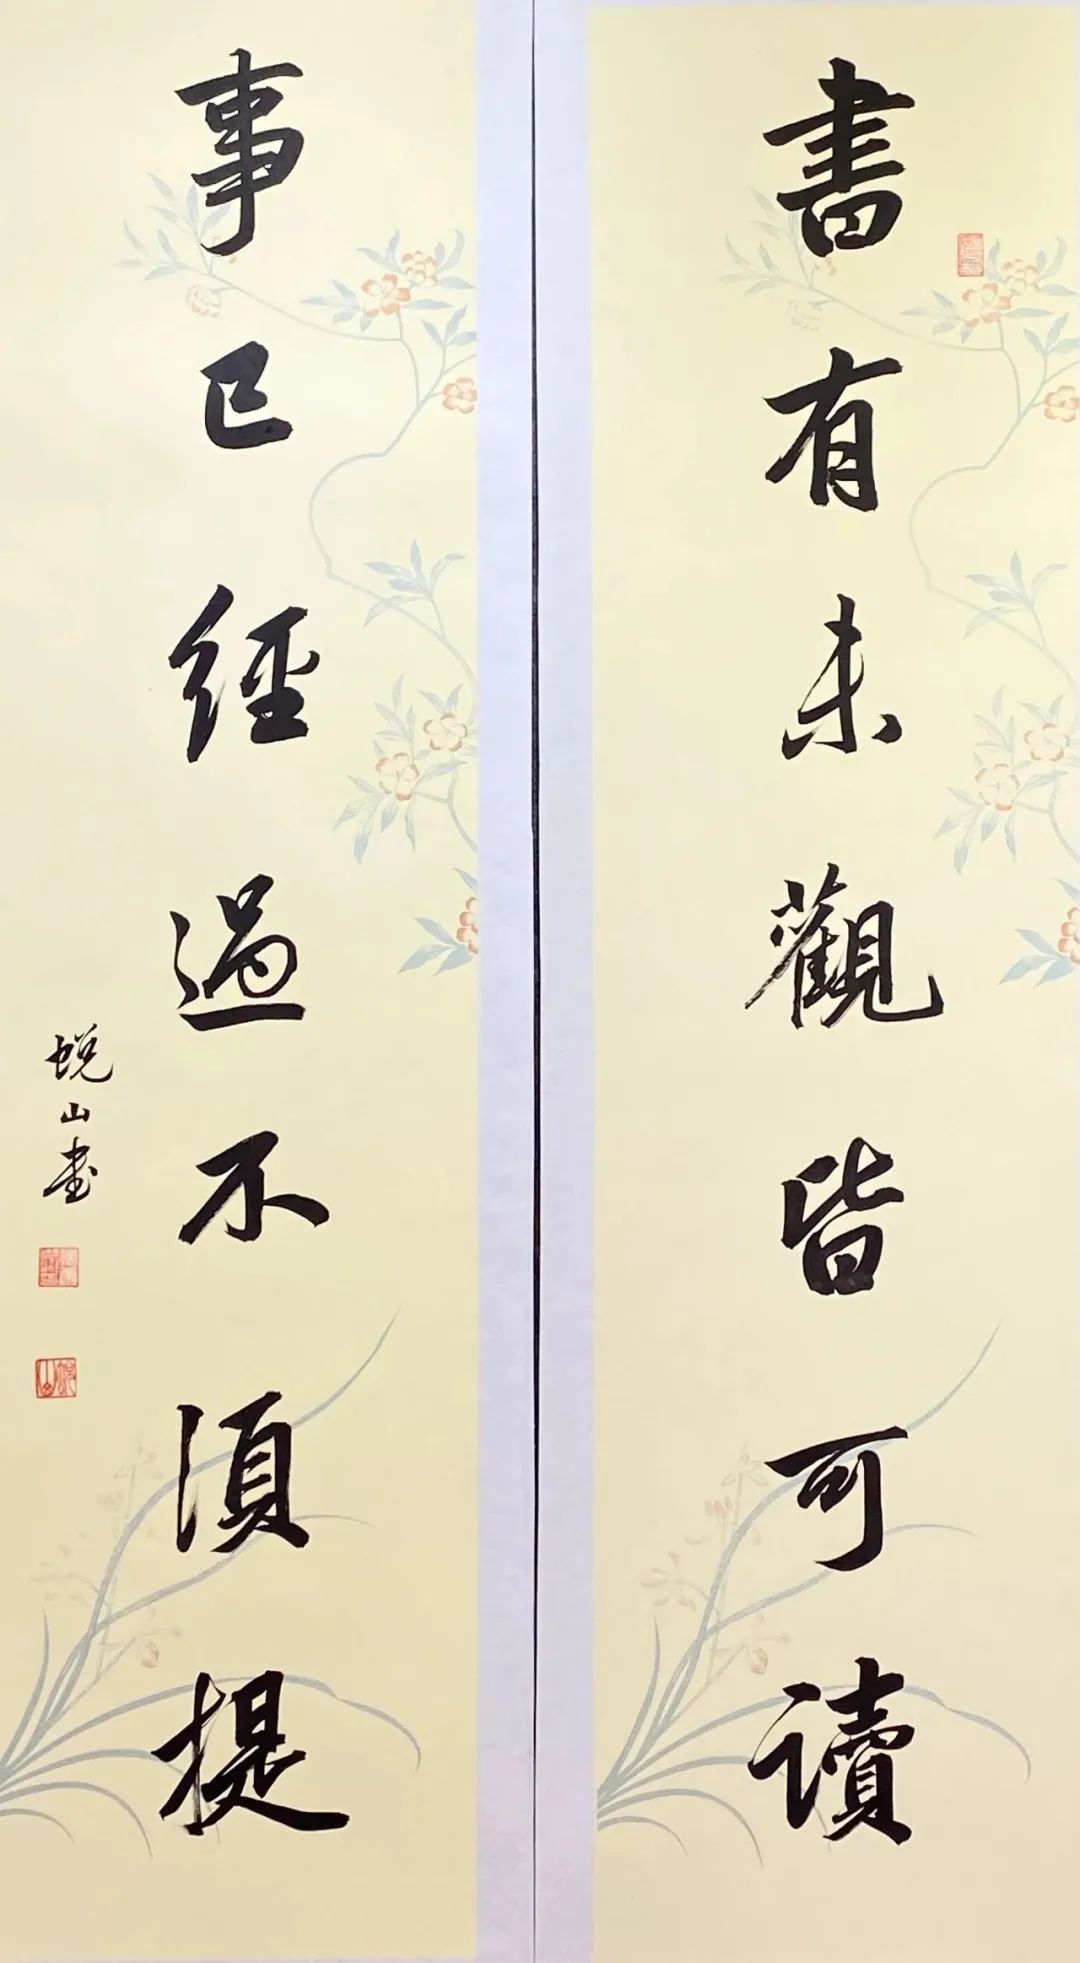 書有未觀皆可讀
事已經過不須提
蜕山書